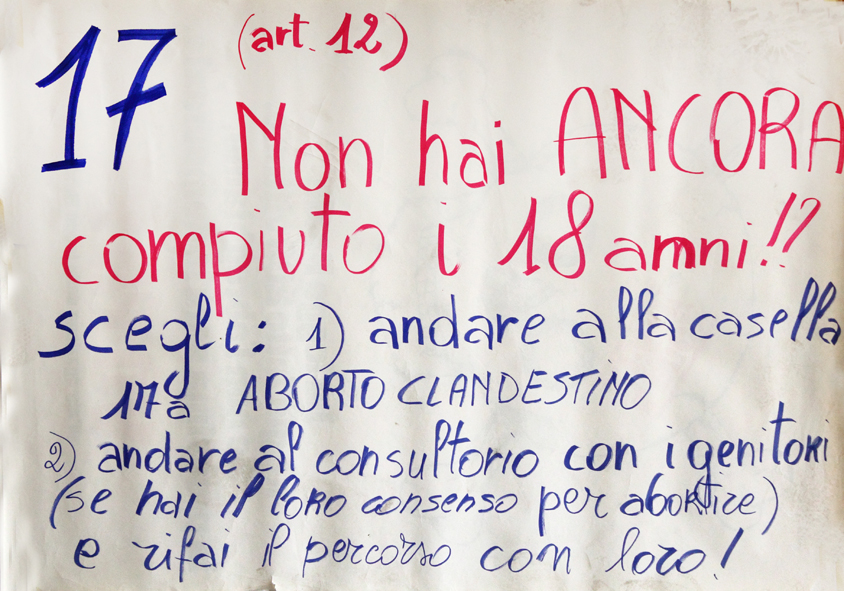 17 (art. 12)
Non hai ANCORA
compiuto i 18 anni!?
scegli: 1) andare alla casella
17a ABORTO CLANDESTINO
2) andare al consultorio con i genitori
(se hai il loro consenso per abortire)
e rifai il percorso con loro!